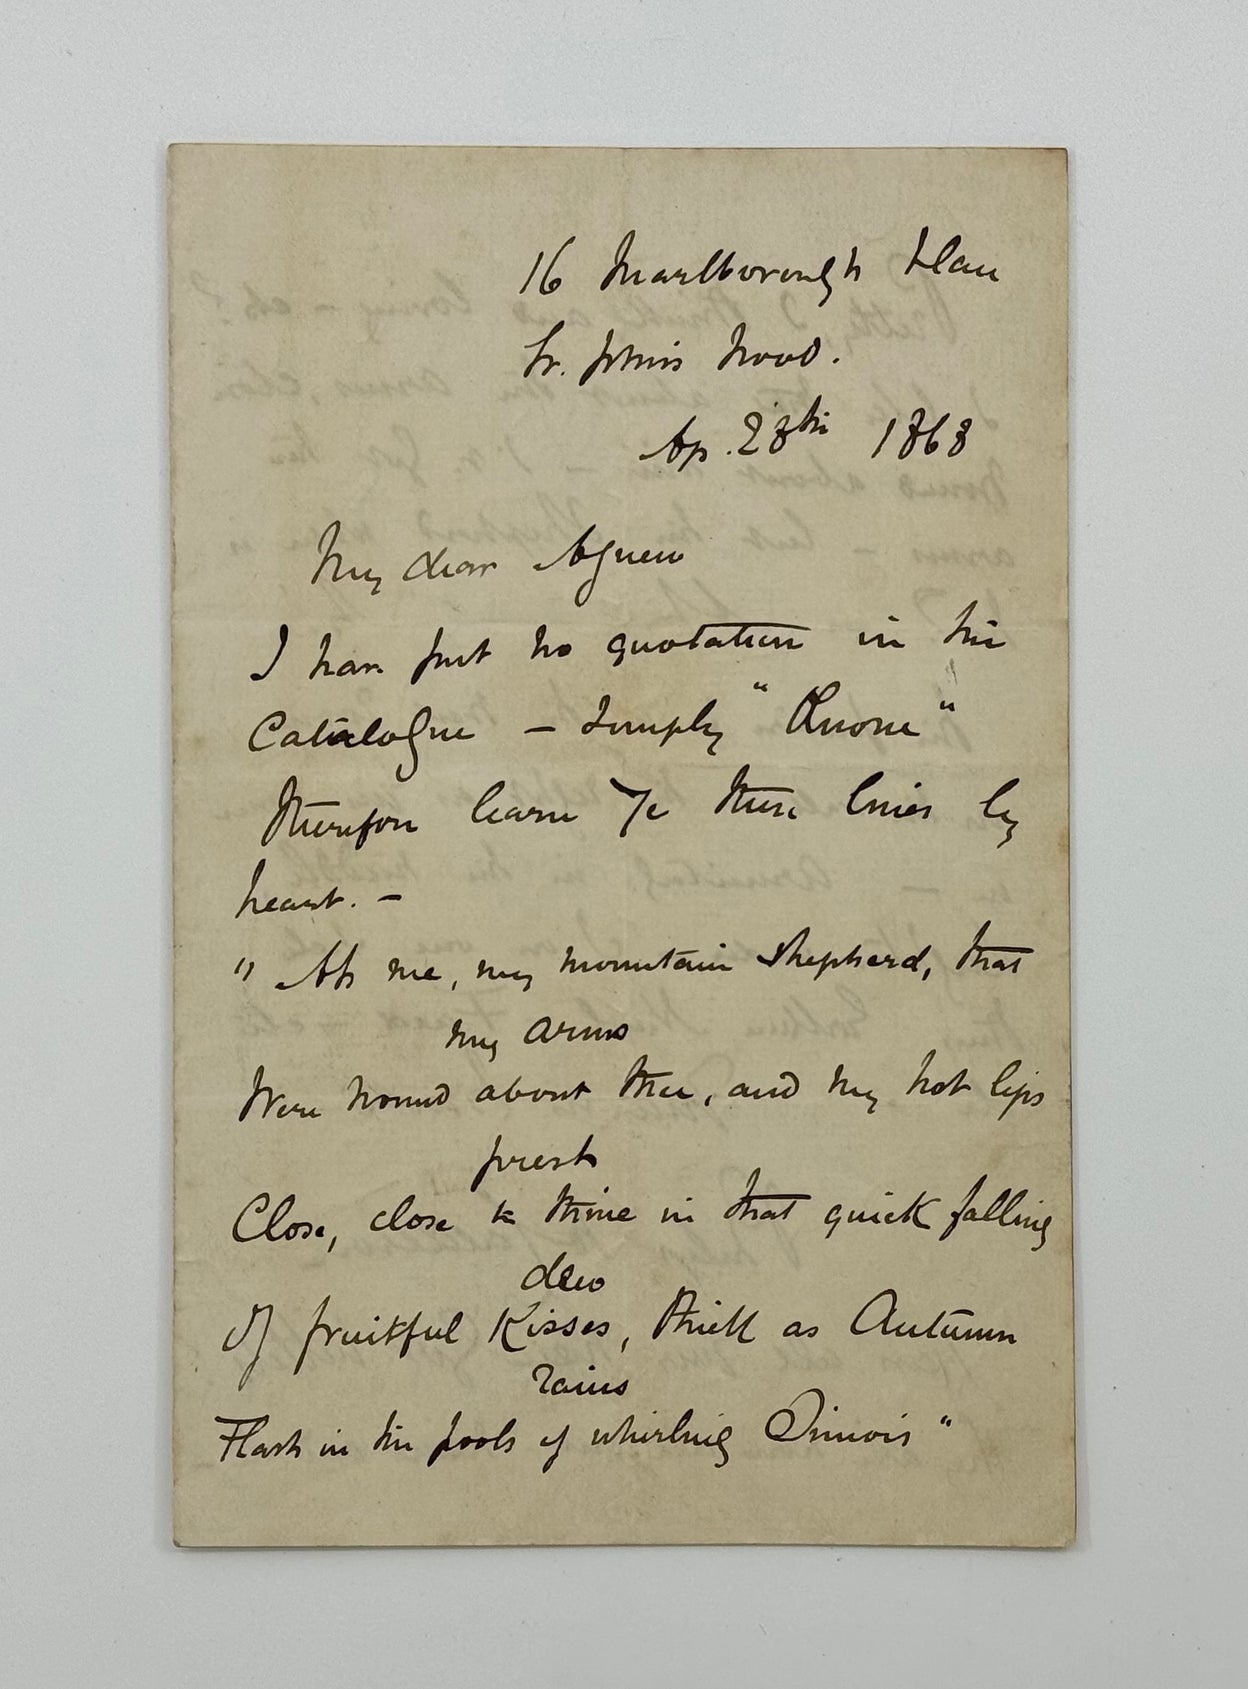 16 Marlborough Place
St. John's Wood.
Ap. 28th 1868
My dear Agnew
I have put no quotation in the
Catalogue – simply "Œnone"
Therefore learn ye these lines by
heart. –
"Ah me, my mountain shepherd, that
my arms
Were wound about thee, and my hot lips
prest
Close, close to thine in that quick falling
dew
Of fruitful Kisses, thick as Autumn
rains
Flash in the pools of whirling Simois"